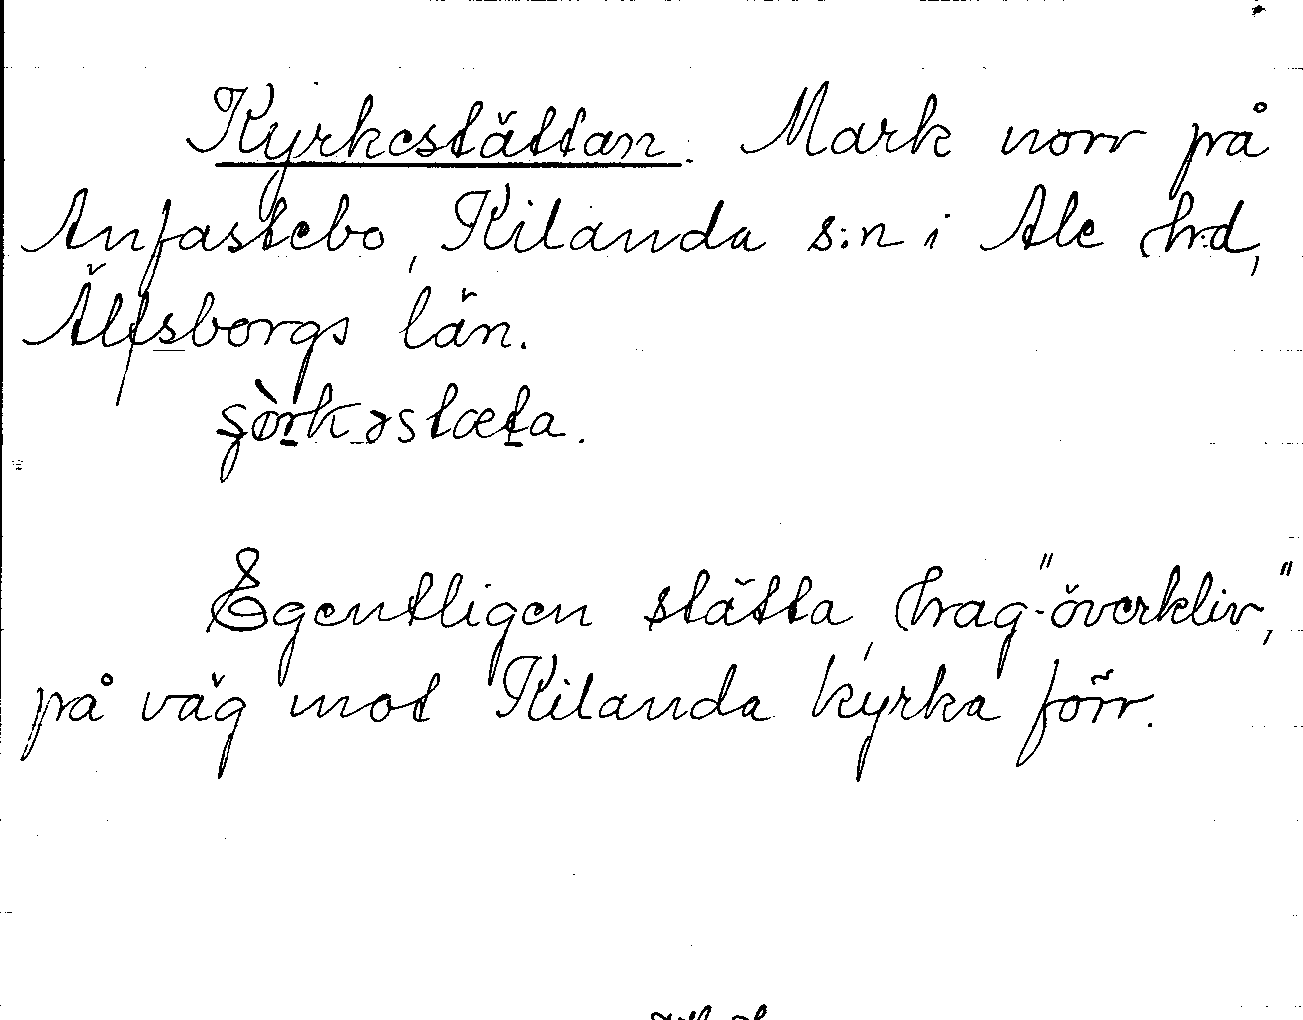 Kyrkestättan. Mark norr på
Anfastebo, Kilanda s:n i Ale h:d,
Älfsborgs län.
ʂò̱rkəstæt̠a.
Egentligen stätta, hag-"överkliv,"
på väg mot Kilanda kyrka förr.